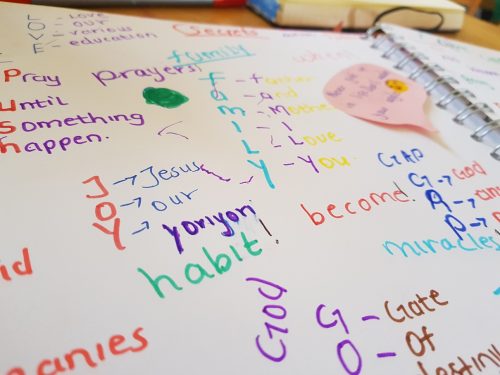 L - Love
O - our
V - various
E - education
Secrets
family
when
Pray
Until
Something
happen.
prayers!
F - father
a - and
m - Mother
I - I
L - Love
Y - You.
J → Jesus
O → our
Y → yoriyori
habit!
become.
GAP
G → God
A →
P →
miracles
God
G - Gate
O - Of